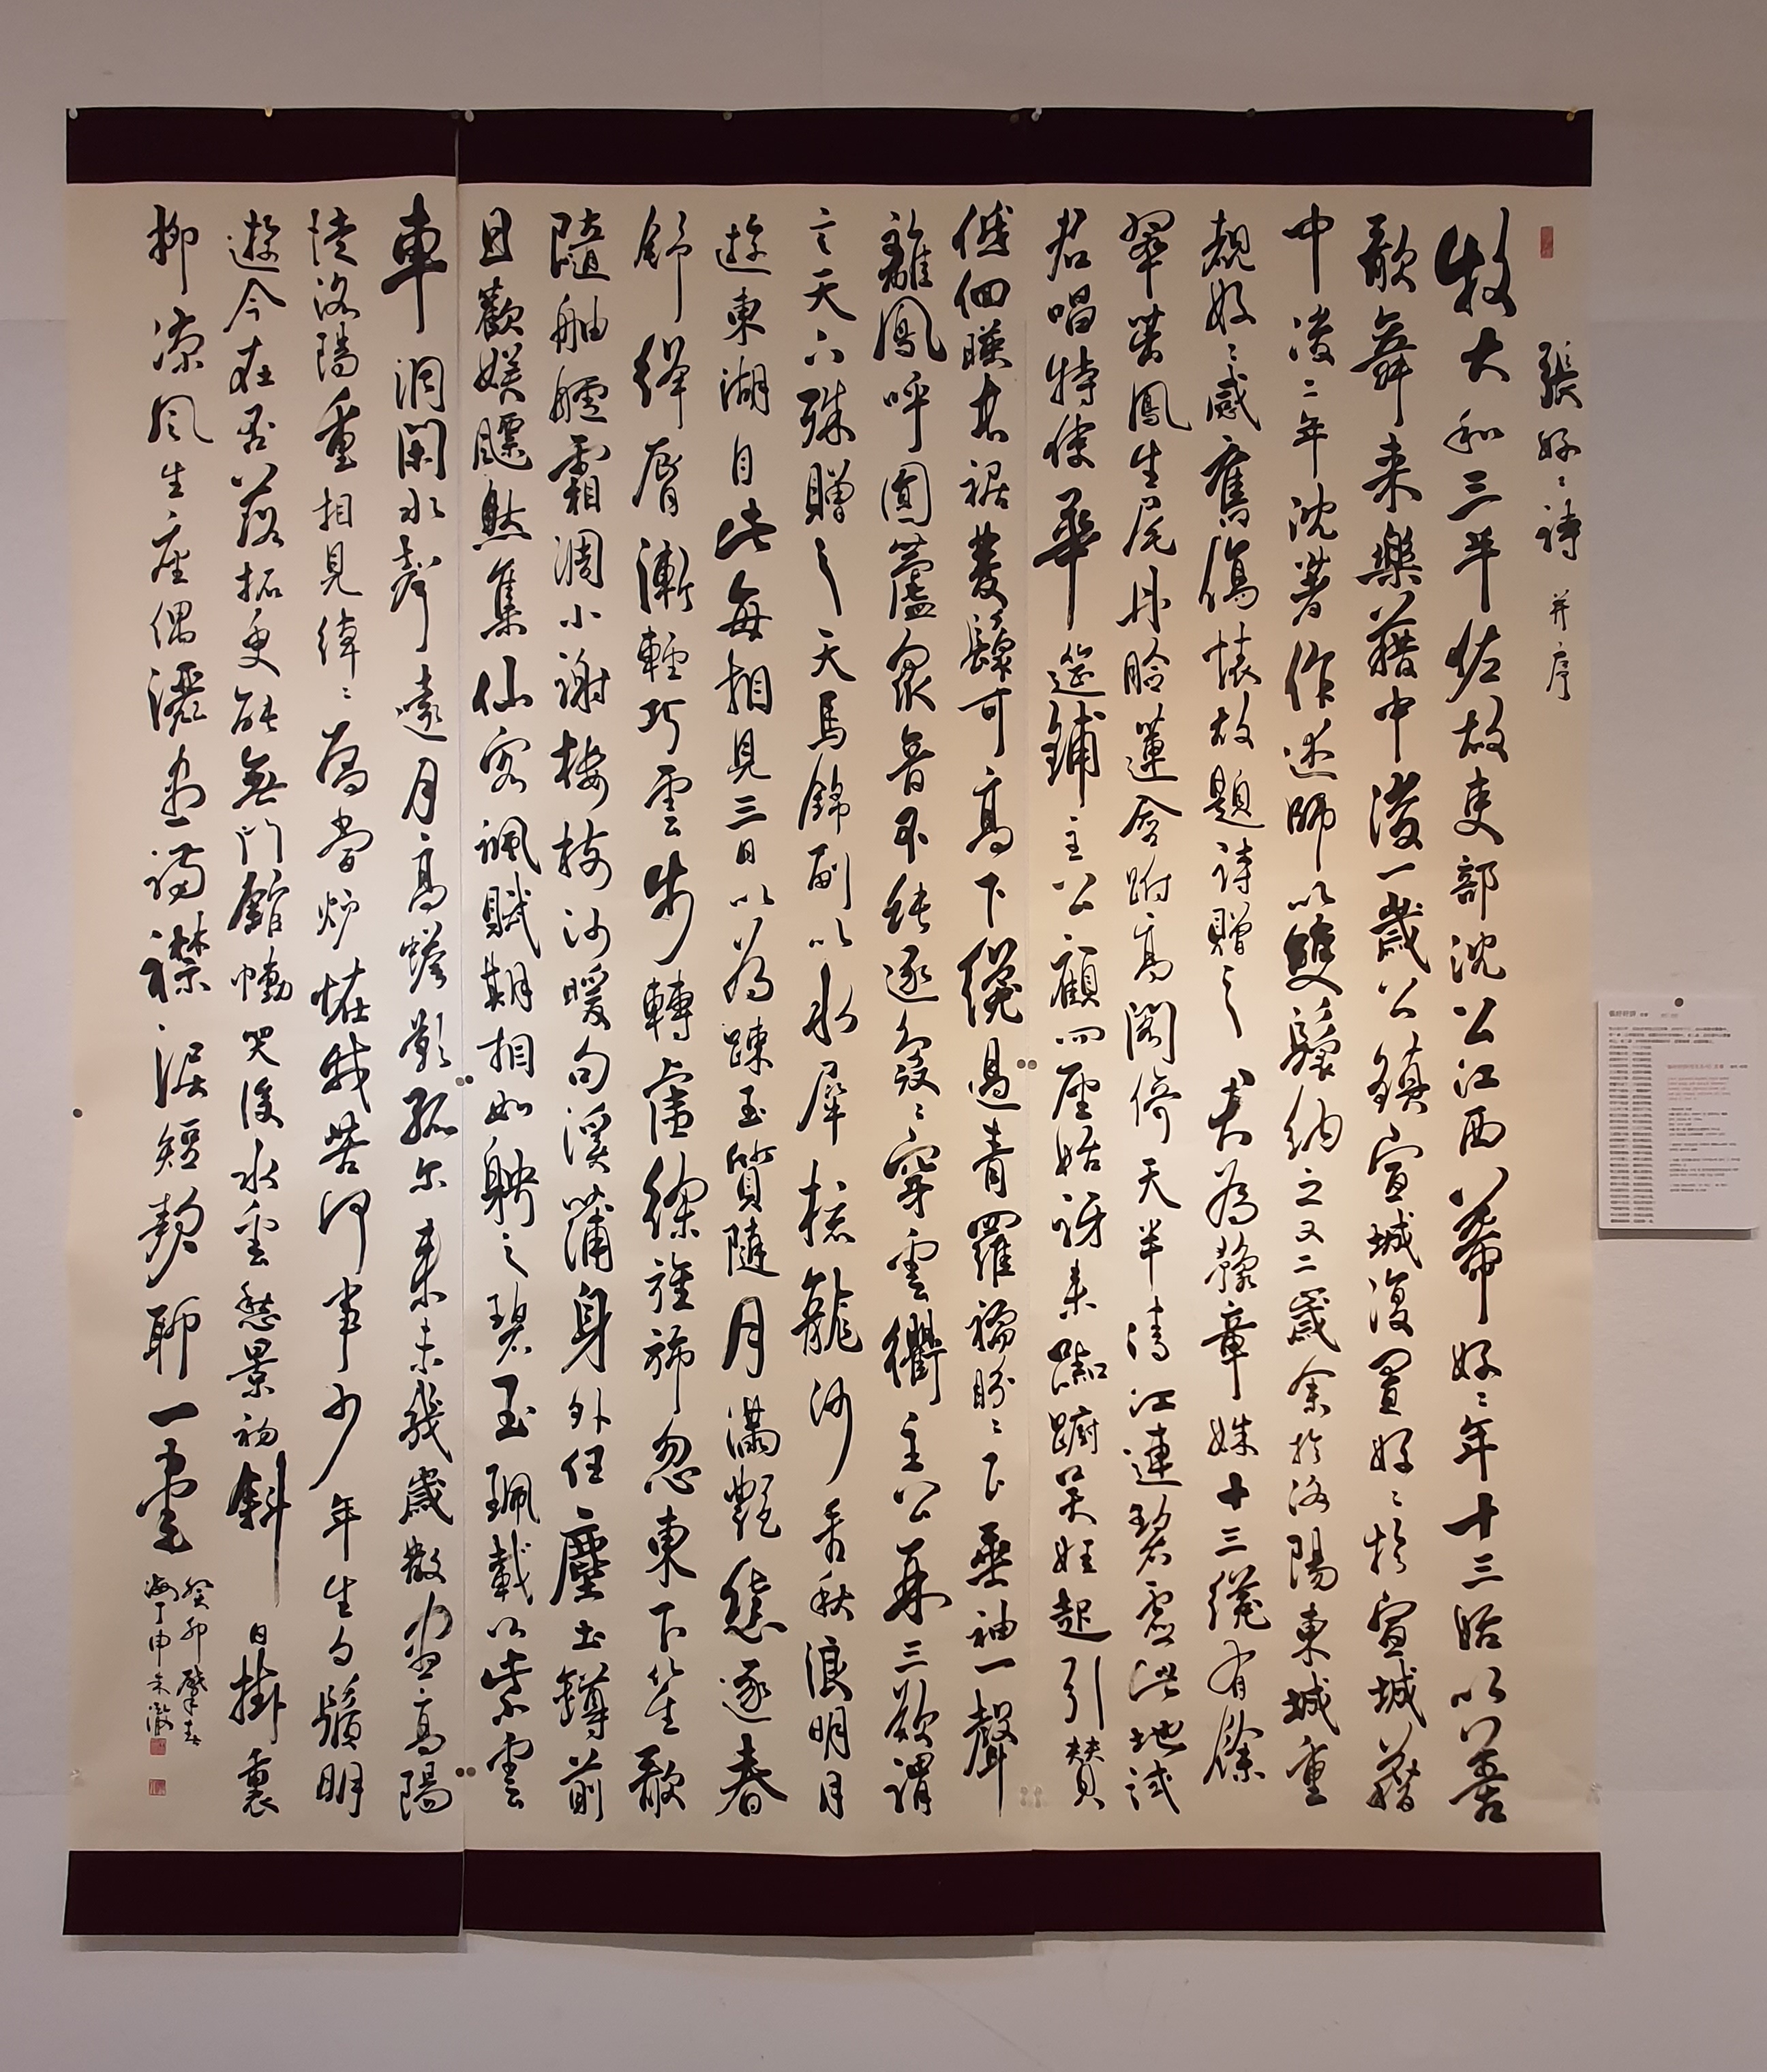 張好〻詩 并序
牧大和三年佐故吏部沈公江西幕好〻年十三始以善
歌舞來樂籍中後一歲公鎮宣城復置好〻於宣城籍
中後二年沈著作述師以雙鬟納之又二歲余於洛陽東城重
覩好〻感舊傷懷故題詩贈之 君為豫章姝十三纔有餘
翠茁鳳生尾丹臉蓮含跗高閣倚天半清江連碧虛此地試
君唱特使華筵鋪主公顧四座始訝來踟躕吳娃起引贊
低佪暎長裾雙鬟可高下纔過青羅襦盼〻下垂袖一聲
離鳳呼圓蘆眾音不能逐裊〻穿雲衢主公再三歎謂
言天下殊贈之天馬錦副以水犀梳龍沙看秋浪明月
遊東湖自此每相見三日以為踈玉質隨月滿艷態逐春
舒絳脣漸輕巧雲步轉虛徐旌旆忽東下笙歌
隨舳艫霜凋小謝樓樹沙暖句溪蒲身外任塵土罇前
且歡娛飄然集仙客諷賦期相如聘之碧玉珮載以紫雲
車洞閑水聲遠月高蟾影孤尓來未幾歲散盡高陽
徒洛陽重相見綽〻為當爐怪我苦何事少年生白鬚朋
遊今在否落拓更能無門館慟哭後水雲愁景初斜日掛衰
柳涼風生座偶灑盡滿襟淚短歌聊一書
癸卯肇春